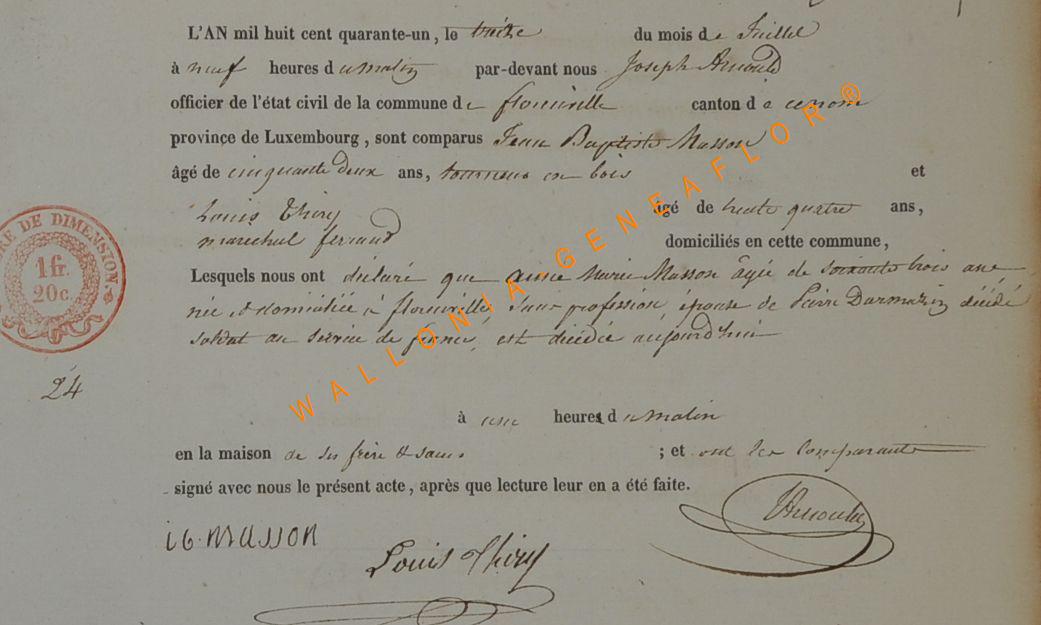 L'AN mil huit cent quarante-un, le treize du mois de Juillet
à neuf heures du matin par-devant nous Joseph Arnould
officier de l'état civil de la commune de florenville canton d e ce nom
province de Luxembourg, sont comparus Jean Baptiste Masson
âgé de cinquante deux ans, tourneur en bois et
Louis Thiry âgé de trente quatre ans,
marechal ferrand domiciliés en cette commune,
Lesquels nous ont déclaré que anne Marie Masson âgée de soixante trois ans
née et domiciliée à florenville, sans profession, épouse de Pierre Darmazin décédé
soldat au service de france, est décédée aujourd'hui
24
à une heures du matin
en la maison de ses frère & sœurs ; et ont les comparants
signé avec nous le présent acte, après que lecture leur en a été faite.
Arnould
i6. MASSON
Louis Thiry
TIMBRE DE DIMENSION.
1 fr.
20c.
WALLONIA GENEAFLOR ®